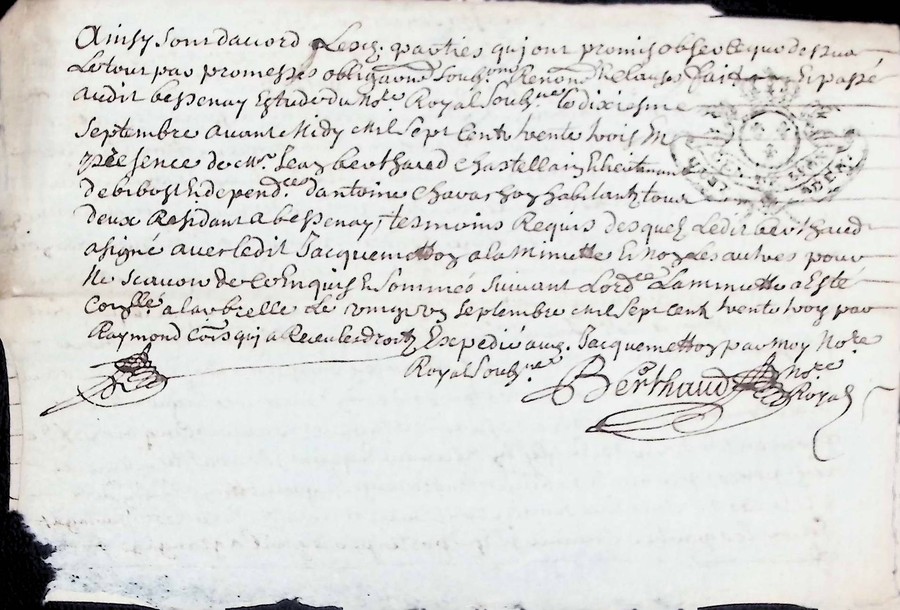 Ainsy sont daccord Lesd. parties qui ont promis observe que dessus
Le tout par promesses obligaons soubons Renons & clauses fait Et passé
audit bessenay Estude du Nore Royal soubne le dixiesme
septembre avant Midy Mil sept cent trente trois En
presence de Mr Jean berthaud Chastellain & lieutenant
de bibost & dependces dantoine Chavassoy habitant tous
deux Residant a bessenay tesmoins Requis desquels Ledit berthaud
a signé avec ledit Jacquemetton a la Minutte & Non Les autres pour
Ne scavoir de ce Enquis & sommés suivant Lordce La minutte a Esté
conllée a larbrelle Le septembre Mil sept cent trente trois par
Raymond Coms qui a Receu les droits Expedié aud. Jacquemetton par moy Nore
Royal soubne
Berthaud Nore
Royal